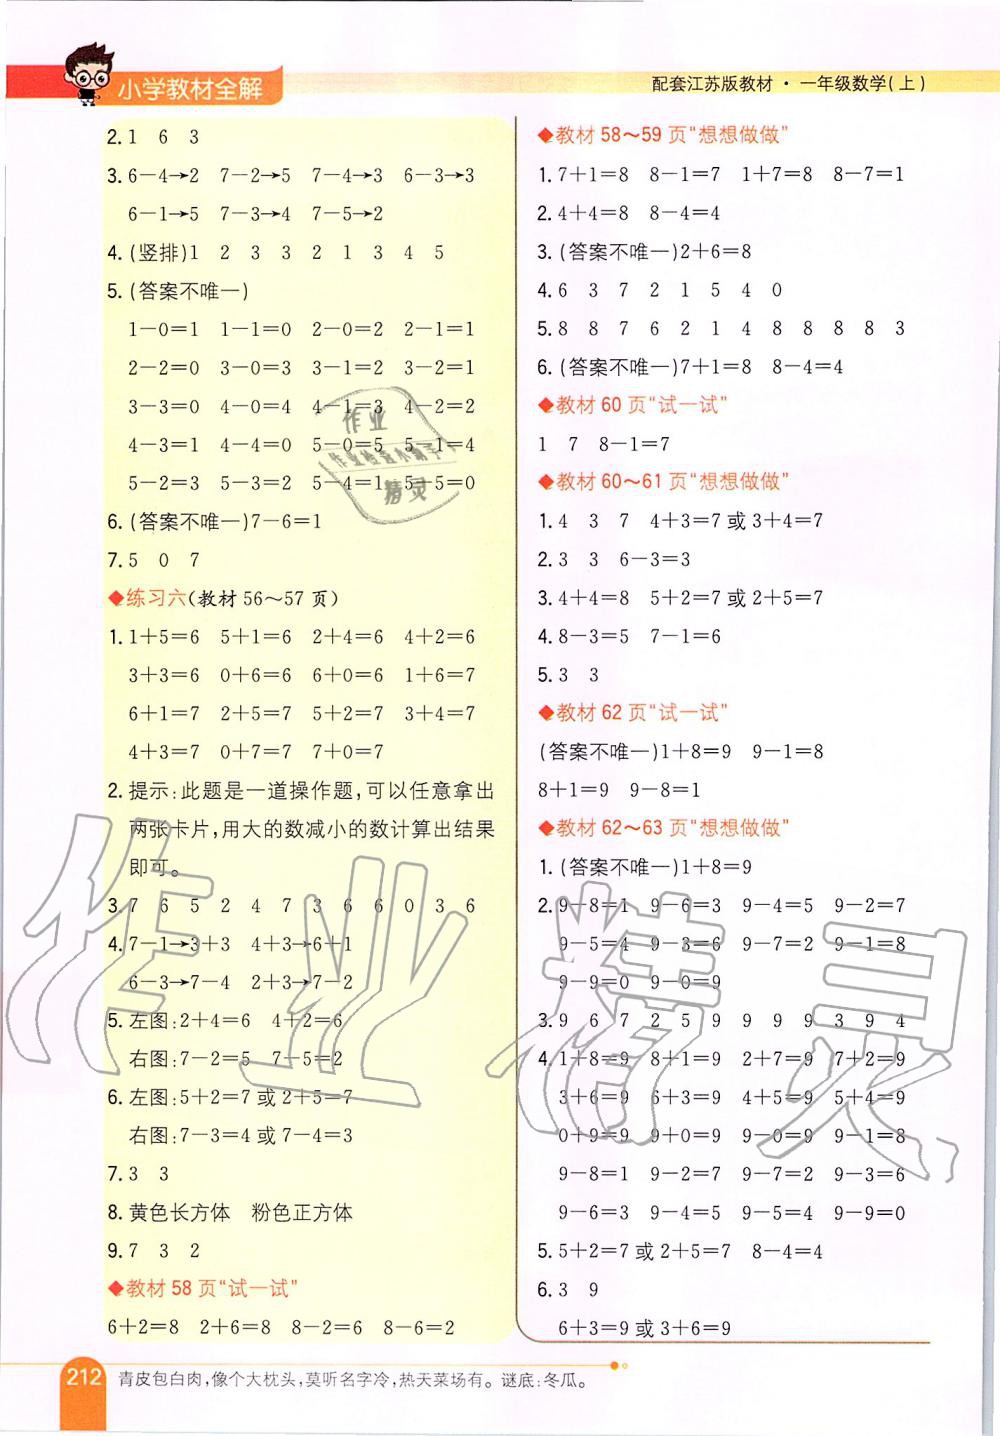 小学教材全解
配套江苏版教材·一年级数学(上)
2. 1 6 3
3. 6－4→2 7－2→5 7－4→3 6－3→3
6－1→5 7－3→4 7－5→2
4. (竖排)1 2 3 3 2 1 3 4 5
5. (答案不唯一)
1－0=1 1－1=0 2－0=2 2－1=1
2－2=0 3－0=3 3－1=2 3－2=1
3－3=0 4－0=4 4－1=3 4－2=2
4－3=1 4－4=0 5－0=5 5－1=4
5－2=3 5－3=2 5－4=1 5－5=0
6. (答案不唯一)7－6=1
7. 5 0 7
◆练习六(教材 56～57 页)
1. 1+5=6 5+1=6 2+4=6 4+2=6
3+3=6 0+6=6 6+0=6 1+6=7
6+1=7 2+5=7 5+2=7 3+4=7
4+3=7 0+7=7 7+0=7
2. 提示:此题是一道操作题,可以任意拿出
两张卡片,用大的数减小的数计算出结果
即可。
3. 7 6 5 2 4 7 3 6 6 0 3 6
4. 7－1→3+3 4+3→6+1
6－3→7－4 2+3→7－2
5. 左图:2+4=6 4+2=6
右图:7－2=5 7－5=2
6. 左图:5+2=7 或 2+5=7
右图:7－3=4 或 7－4=3
7. 3 3
8. 黄色长方体 粉色正方体
9. 7 3 2
◆教材 58 页“试一试”
6+2=8 2+6=8 8－2=6 8－6=2
◆教材 58～59 页“想想做做”
1. 7+1=8 8－1=7 1+7=8 8－7=1
2. 4+4=8 8－4=4
3. (答案不唯一)2+6=8
4. 6 3 7 2 1 5 4 0
5. 8 8 7 6 2 1 4 8 8 8 8 3
6. (答案不唯一)7+1=8 8－4=4
◆教材 60 页“试一试”
1 7 8－1=7
◆教材 60～61 页“想想做做”
1. 4 3 7 4+3=7 或 3+4=7
2. 3 3 6－3=3
3. 4+4=8 5+2=7 或 2+5=7
4. 8－3=5 7－1=6
5. 3 3
◆教材 62 页“试一试”
(答案不唯一)1+8=9 9－1=8
8+1=9 9－8=1
◆教材 62～63 页“想想做做”
1. (答案不唯一)1+8=9
2. 9－8=1 9－6=3 9－4=5 9－2=7
9－5=4 9－3=6 9－7=2 9－1=8
9－9=0 9－0=9
3. 9 6 7 2 5 9 9 9 9 3 9 4
4. 1+8=9 8+1=9 2+7=9 7+2=9
3+6=9 6+3=9 4+5=9 5+4=9
0+9=9 9+0=9 9－0=9 9－1=8
9－8=1 9－2=7 9－7=2 9－3=6
9－6=3 9－4=5 9－5=4 9－9=0
5. 5+2=7 或 2+5=7 8－4=4
6. 3 9
6+3=9 或 3+6=9
212
青皮包白肉,像个大枕头,莫听名字冷,热天菜场有。谜底:冬瓜。
作业精灵
作业
精灵